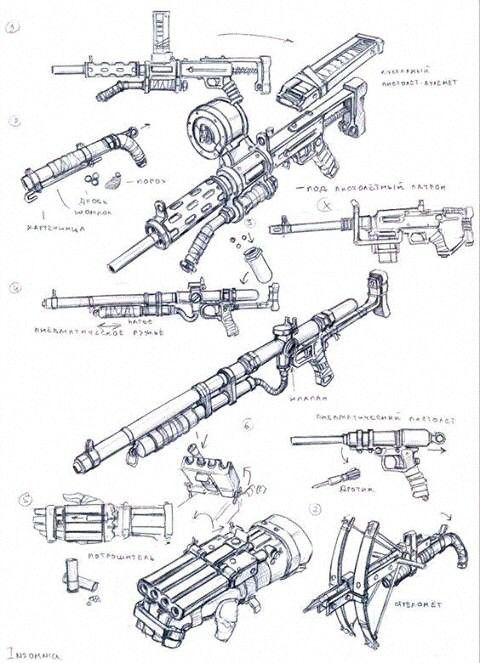 1
КУСТАРНЫЙ
ПИСТОЛЕТ-ПУЛЕМЕТ
2
ПОРОХ
ДРОБЬ
ШОМПОЛ
КАРТЕЧНИЦА
ПОД ПИСТОЛЕТНЫЙ ПАТРОН
X
3
4
ПНЕВМАТИЧЕСКОЕ РУЖЬЁ
КЛАПАН
ПНЕВМАТИЧЕСКИЙ ПИСТОЛЕТ
6
ДРОТИК
5
ПОТРОШИТЕЛЬ
7
СТРЕЛОМЁТ
INSOMNIA